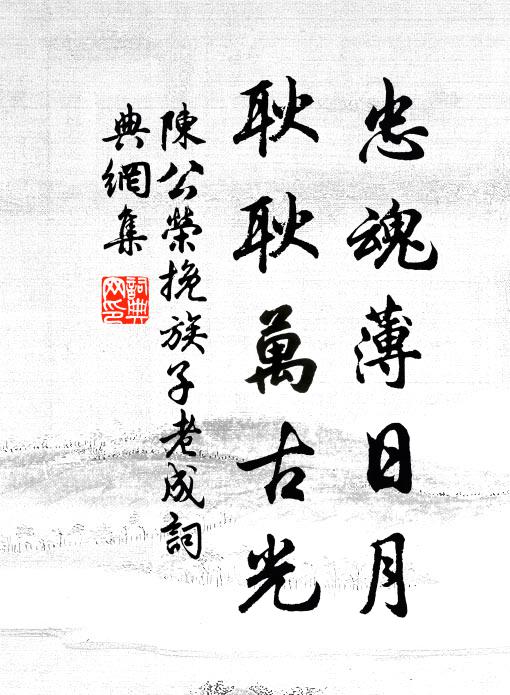 忠魂薄日月
耿耿萬古光
陳公榮挽族子老成詞
典網集
詞典
网印